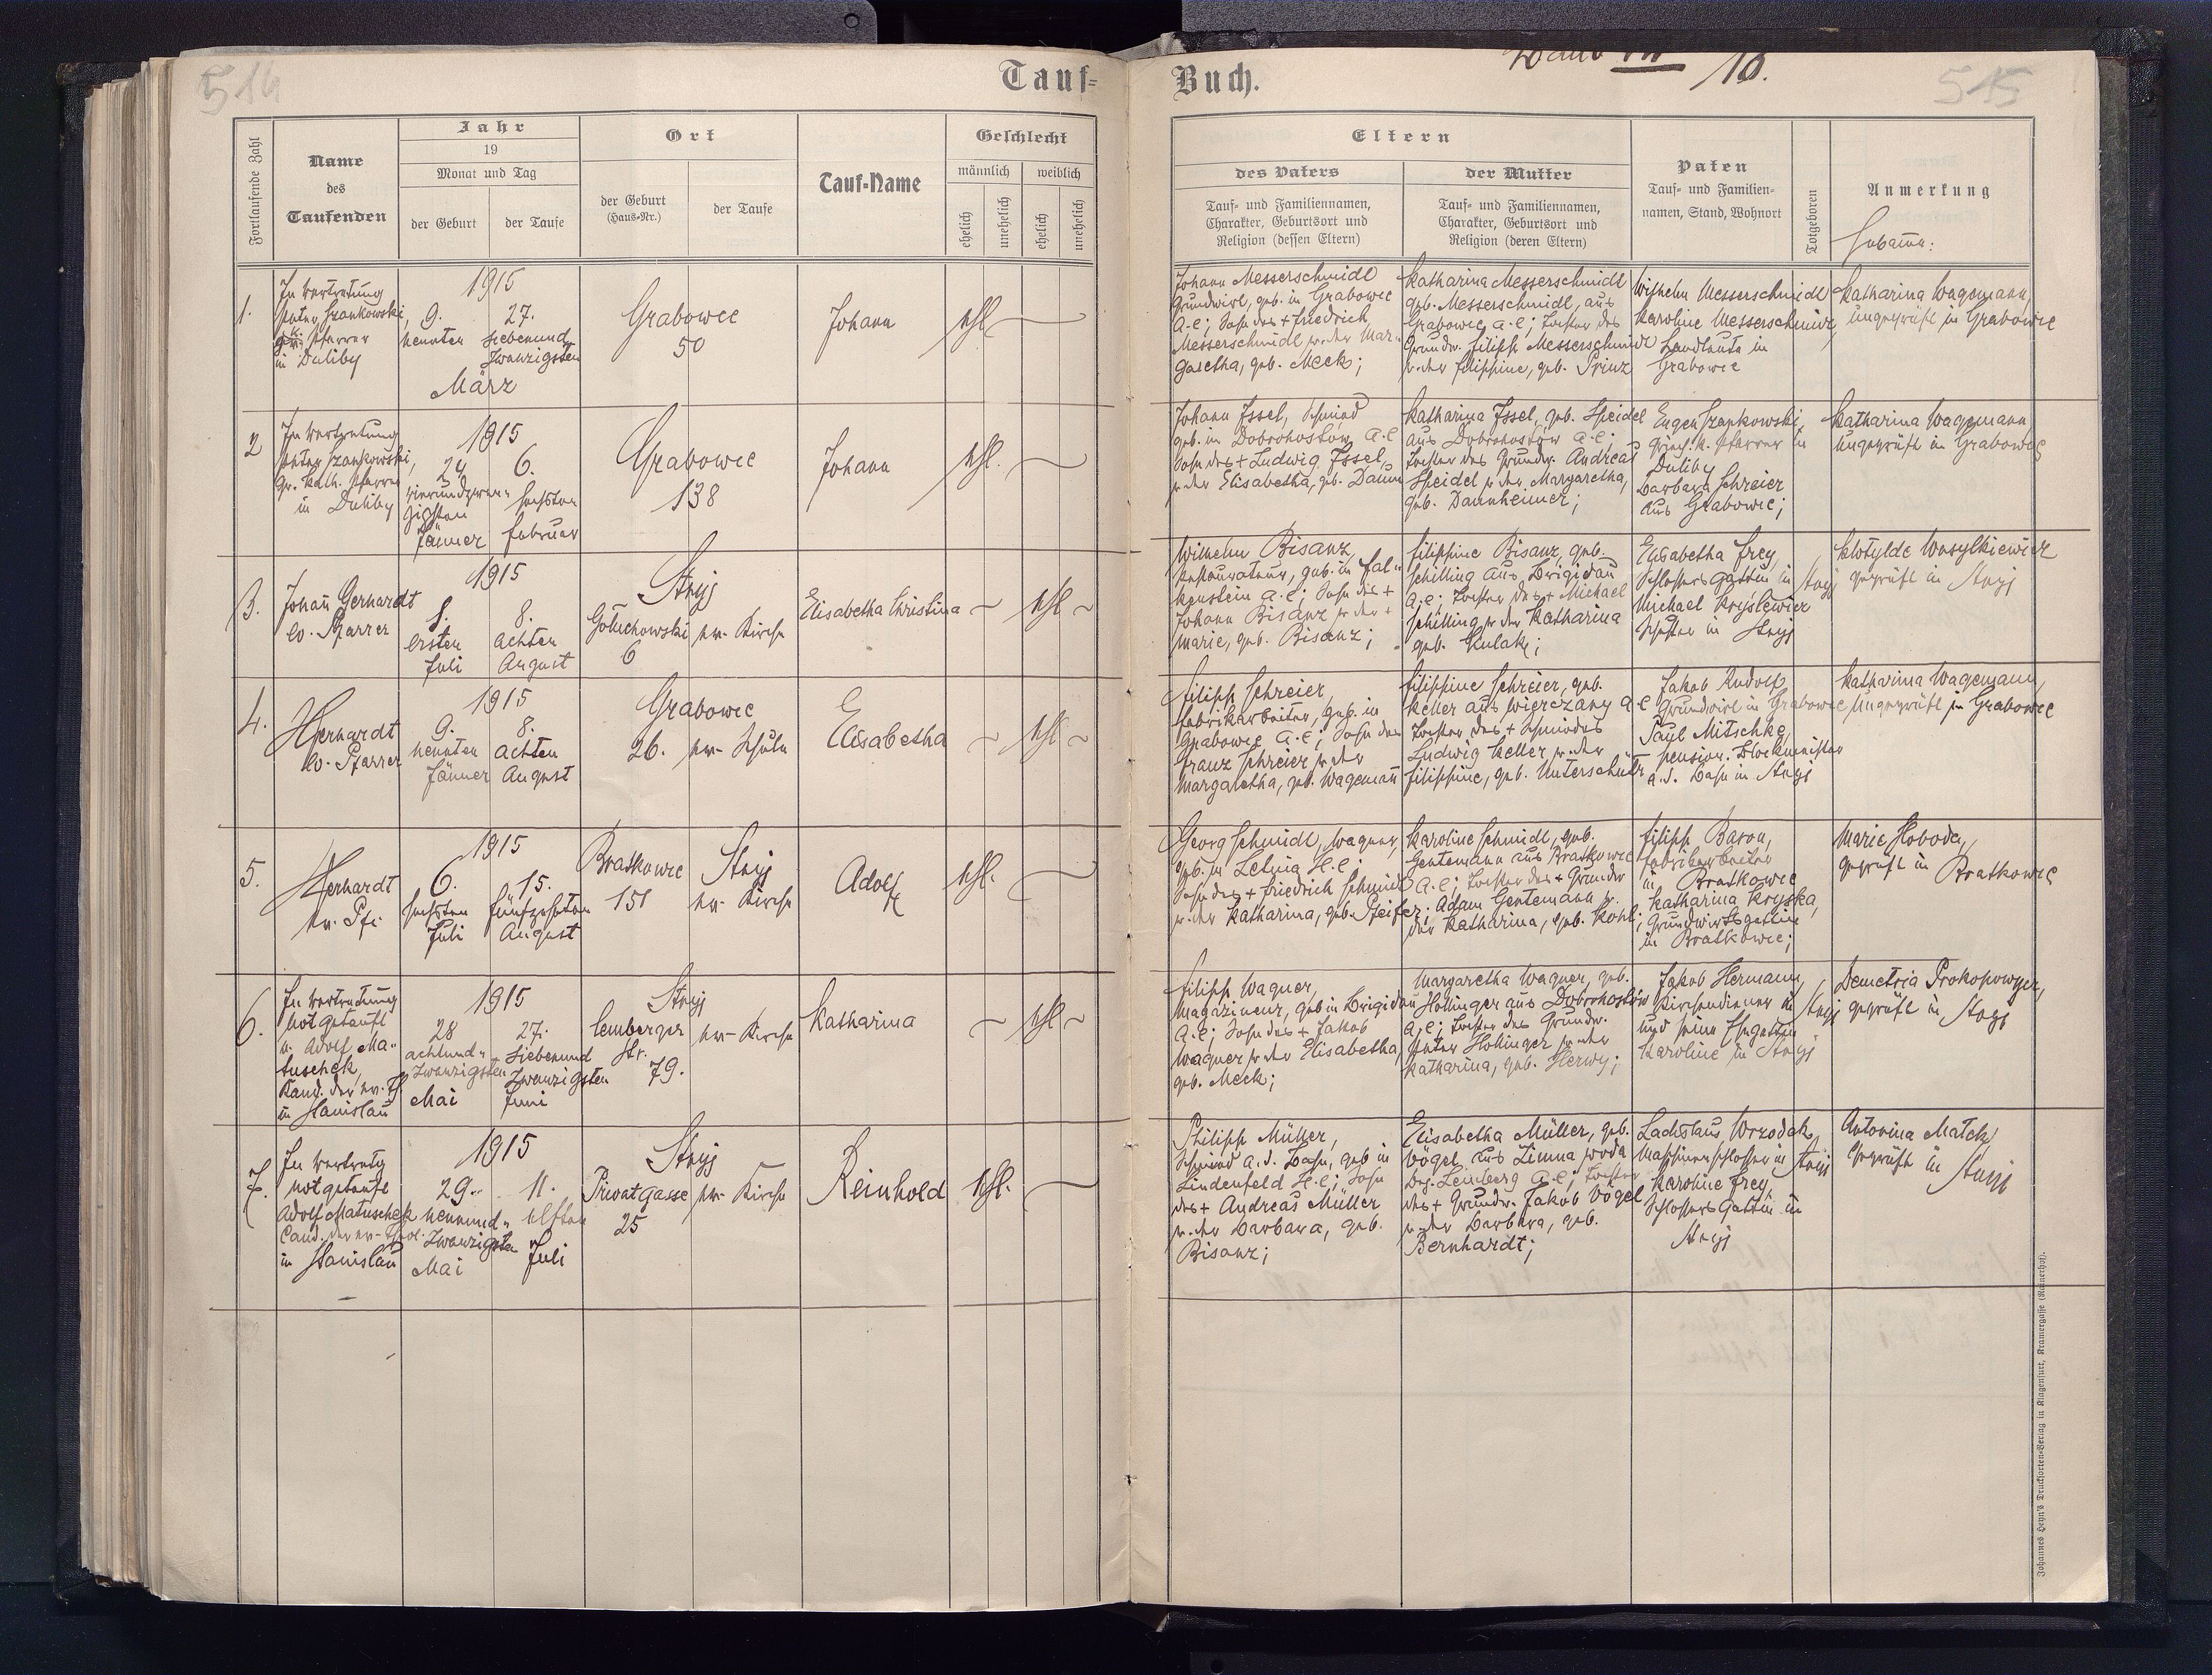 514
Tauf=
Buch.
10.
515
Fortlaufende Zahl
Name
des
Taufenden
Jahr
19
Monat und Tag
der Geburt
der Taufe
Ort
der Geburt
(Haus-Nr.)
der Taufe
Tauf-Name
Geschlecht
männlich
weiblich
ehelich
unehelich
ehelich
unehelich
Eltern
des Vaters
Tauf- und Familiennamen,
Charakter, Geburtsort und
Religion (dessen Eltern)
der Mutter
Tauf- und Familiennamen,
Charakter, Geburtsort und
Religion (deren Eltern)
Paten
Tauf- und Familien-
namen, Stand, Wohnort
Totgeboren
Anmerkung
Hebamme:
1.
In Vertretung
Szankowski,
Pfarrer
in Duliby
1915
9.
neunten
27.
siebenund
zwanzigsten
März
Grabowce
50
Johann
ehl.
Johann Messerschmidt
Grundwirt, geb. in Grabowce
A.C; Sohn des + Friedrich
Messerschmidt u. der Mar-
garetha, geb. Meck;
Katharina Messerschmidt
geb. Messerschmidt, aus
Grabowce A.C; Tochter des
Grundw. Filipp Messerschmidt
u. der Filippine, geb. Prinz
Wilhelm Messerschmidt
Karoline Messerschmidt,
Landleute in
Grabowce
Katharina Wagemann,
ungeprüft in Grabowce
2
In Vertretung
Szankowski,
gr. kath. Pfarrer
in Duliby
1915
24
vierundzwan-
zigsten
Jänner
6.
sechsten
Februar
Grabowce
138
Johann
ehl.
Johann Issel, Schmied
geb. in Dobrohostów A.C
Sohn des + Ludwig Issel,
u. der Elisabetha, geb. Daum
Katharina Issel, geb. Speidel
aus Dobrohostów A.C;
Tochter des Grundw. Andreas
Speidel u. der Margaretha,
geb. Daunheimer;
Eugen Szankowski,
griech. k. Pfarrer in
Duliby
Barbara Schreier
aus Grabowce;
Katharina Wagemann
ungeprüft in Grabowce
3.
Johann Gerhardt
ev. Pfarrer
1915
1.
ersten
Juli
8.
achten
August
Stryj
Gołuchowski
6
ev. Kirche
Elisabetha Christina
ehl
Wilhelm Bisanz,
Restaurateur, geb. in Fal-
kenstein A.C; Sohn des +
Johann Bisanz u. der +
Marie, geb. Bisanz;
Filippine Bisanz, geb.
Schilling aus Brigidau
A.C; Tochter des + Michael
Schilling u. der Katharina
geb. Kulak;
Elisabetha Frey,
Schlossers Gattin in Stryj
Michael
Schuster in Stryj
Klotylde Wasylkiewicz
geprüft in Stryj
4.
JGerhardt
ev. Pfarrer
1915
9.
neunten
Jänner
8.
achten
August
Grabowce
26.
ev. Schule
Elisabetha
ehl
Filipp Schreier,
Fabrikarbeiter, geb. in
Grabowce A.C; Sohn des
Franz Schreier u. der
Margaretha, geb. Wagemann
Filippine Schreier, geb.
Keller aus Wierczany A.C
Tochter des + Schmiedes
Ludwig Keller u. der
Filippine, geb. Unterschütz
Jakob Rudolf
Grundwirt in Grabowce
Paul Mitschke,
pension. Blockmeister
a.d. Bahn in Stryj
Katharina Wagemann,
ungeprüft in Grabowce
5.
JGerhardt
ev. Pf.
1915
6.
sechsten
Juli
15.
fünfzehnten
August
Bratkowce
151
Stryj
ev. Kirche
Adolf
ehl.
Georg Schmidt, Wagner,
geb. in Letnia H.C;
Sohn des + Friedrich Schmidt
u. der Katharina, geb. Pfeifer;
Karoline Schmidt, geb.
Gentemann aus Bratkowce
A.C; Tochter des + Grundw
Adam Gentemann u.
der Katharina, geb. Kohl;
Filipp Baron,
Fabriksarbeiter
in Bratkowce
Katharina Kryska,
Grundwirtsgattin
in Bratkowce;
Marie Sloboda,
geprüft in Bratkowce
6.
In Vertretung
notgetauft
v. Adolf Ma-
tuschek,
Kand. der ev. Th.
in Stanislau
1915
28
achtund-
zwanzigsten
Mai
27.
siebenund
zwanzigsten
Juni
Stryj
Lemberger
Str.
79.
ev. Kirche
Katharina
ehl
Filipp Wagner,
Magazineur, geb in Brigidau
A.C; Sohn des + Jakob
Wagner u. der Elisabetha,
geb. Meck;
Margaretha Wagner, geb.
Hollinger aus Dobrohostów
A.C; Tochter des Grundw.
Peter Hollinger u. der
Katharina, geb. Herwy;
Jakob Hermann,
Kirchendiener in Stryj
und seine Ehegattin
Karoline in Stryj
Demetria Prokopowycz,
geprüft in Stryj
7.
In Vertretg
notgetauft
Adolf Matuschek
Cand. der ev. Theol.
in Stanislau
1915
29.
neunund-
zwanzigsten
Mai
11.
elften
Juli
Stryj
Privatgasse
25
ev. Kirche
Reinhold
ehl.
Philipp Müller,
Schmied a.d. Bahn, geb in
Lindenfeld H.C; Sohn
des + Andreas Müller
u. der Barbara, geb.
Bisanz;
Elisabetha Müller, geb.
Vögel aus Zimna woda
Bez. Lemberg A.C; Tochter
des + Grundw. Jakob Vögel
u. der Barbara, geb.
Bernhardt;
Ladislaus Wrzodak,
Maschinenschlosser in Stryj
Karoline Frey,
Schlossers Gattin in
Stryj
Antonina Matck,
geprüft in Stryj
Johannes Heyn's Drucksorten-Verlag in Klagenfurt, Kramergasse (Rainerhof).